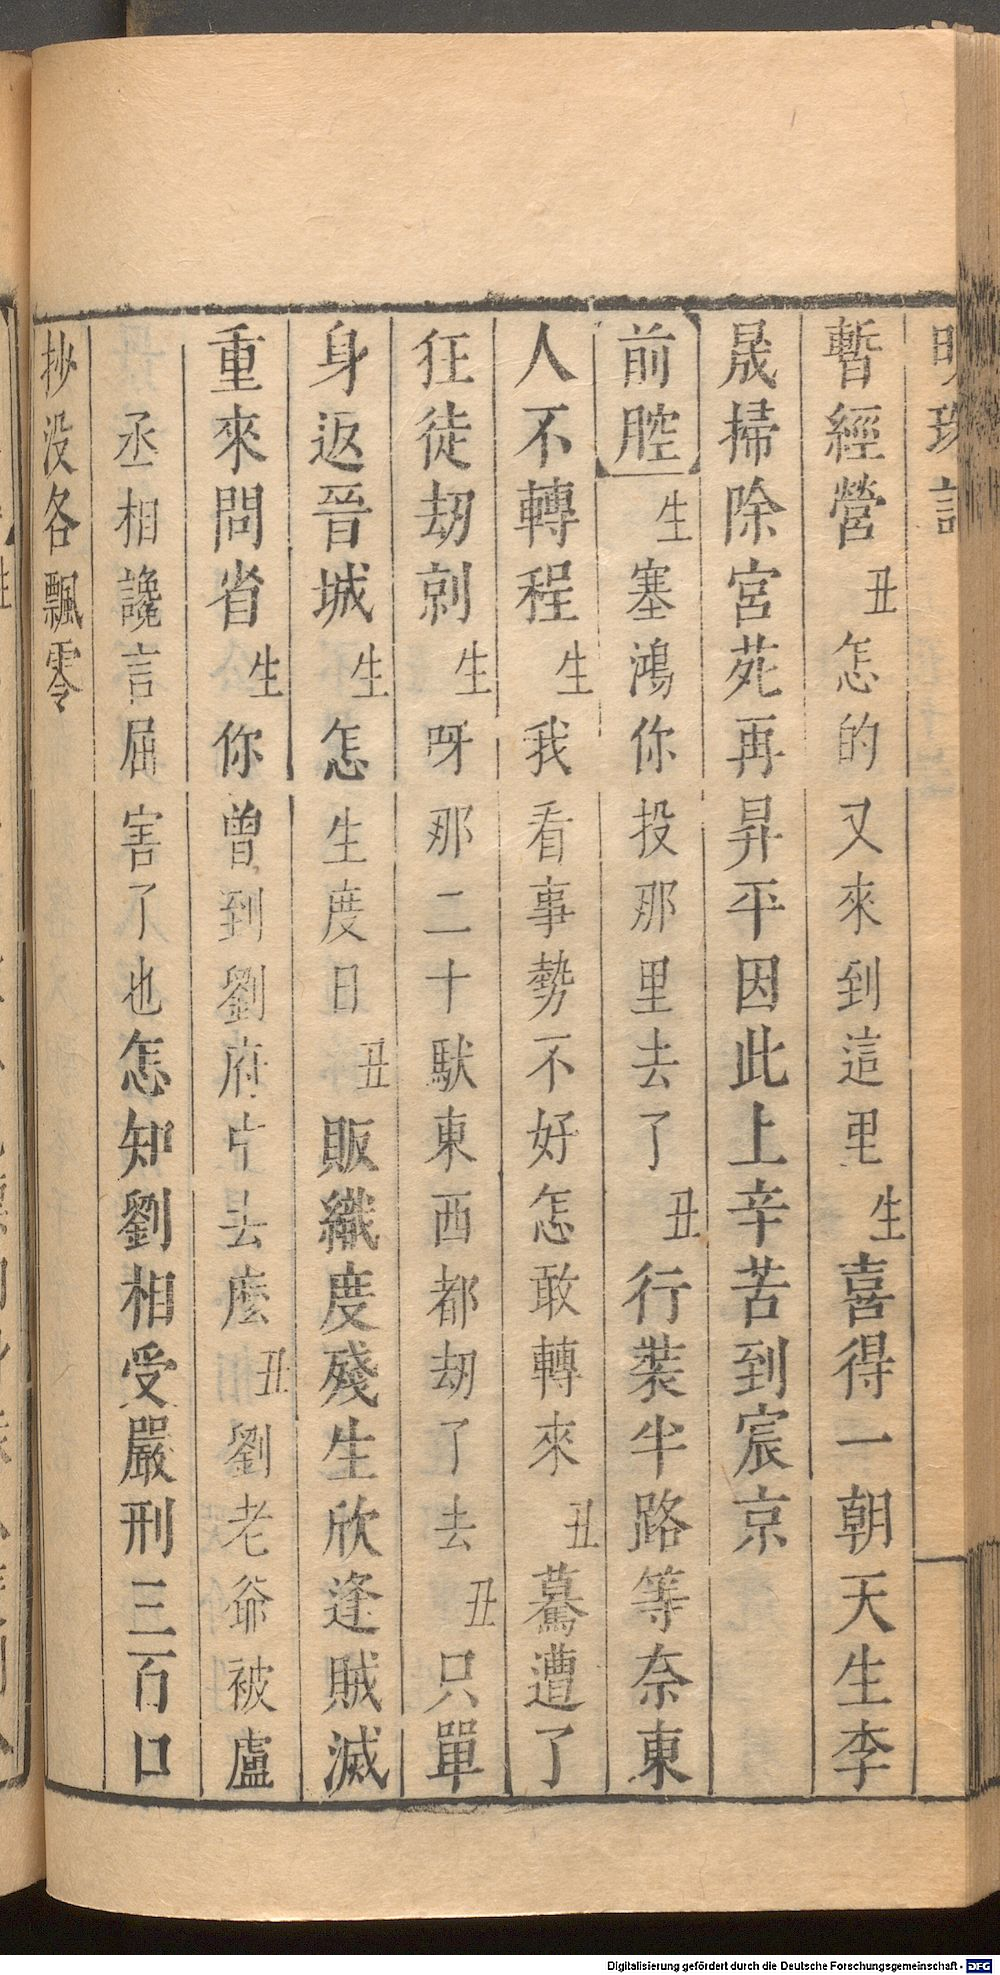 明珠記
暫經營丑怎的又來到這里生喜得一朝天生李
晟掃除宮苑再昇平因此上辛苦到宸京
前腔生塞鴻你投那里去了丑行裝半路等奈東
人不轉程生我看事勢不好怎敢轉來丑驀遭了
狂徒刼剠生呀那二十馱東西都刼了去丑只單
身返晉城生怎生度日丑販繊度殘生欣逢賊滅
重來問省生你曾到劉府中去麽丑劉老爺被盧
丞相讒言屈害了也怎知劉相受嚴刑三百口
抄没各飄零
Digitalisierung gefördert durch die Deutsche Forschungsgemeinschaft - DFG